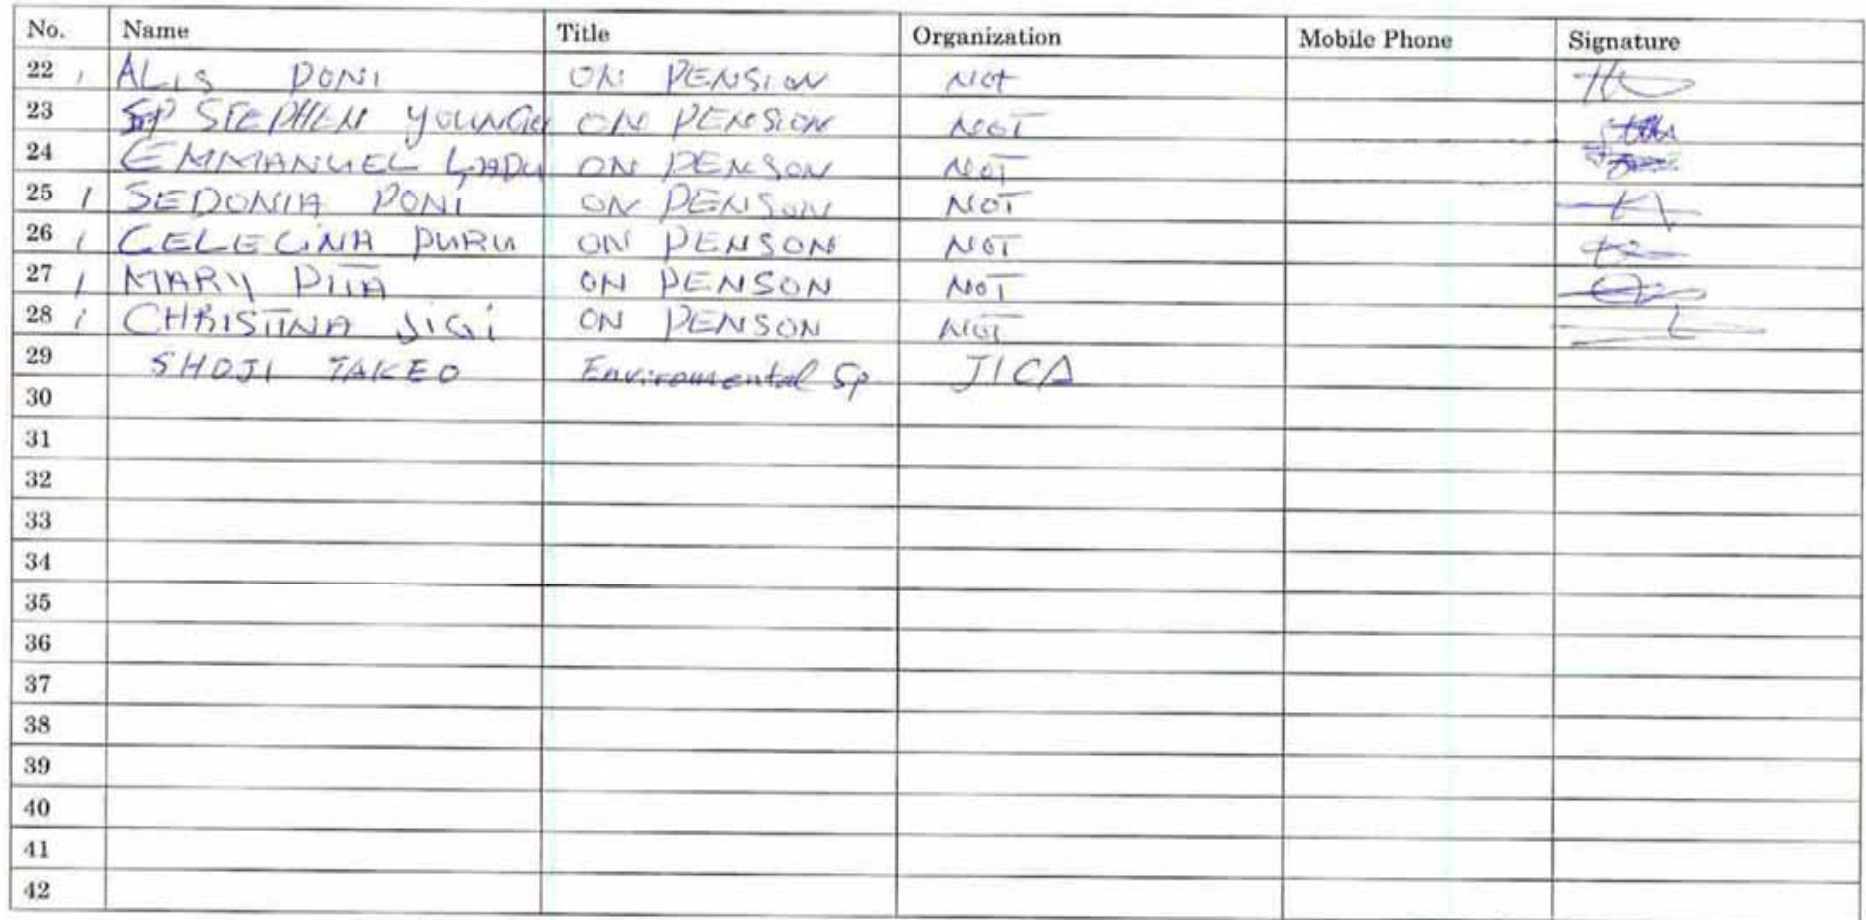 No. Name Title Organization Mobile Phone Signature
22 ALIS PONI ON PENSION Not
23 STEPHEN YOUNGU ON PENSION NOT
24 EMMANUEL LADU ON PENSON NOT
25 SEDONIA PONI ON PENSION NOT
26 CELECINA PURU ON PENSON NOT
27 MARY PITA ON PENSON NOT
28 CHRISTINA JIGI ON PENSON NOT
29 SHOJI TAKEO Enviromental Sp JICA
30
31
32
33
34
35
36
37
38
39
40
41
42